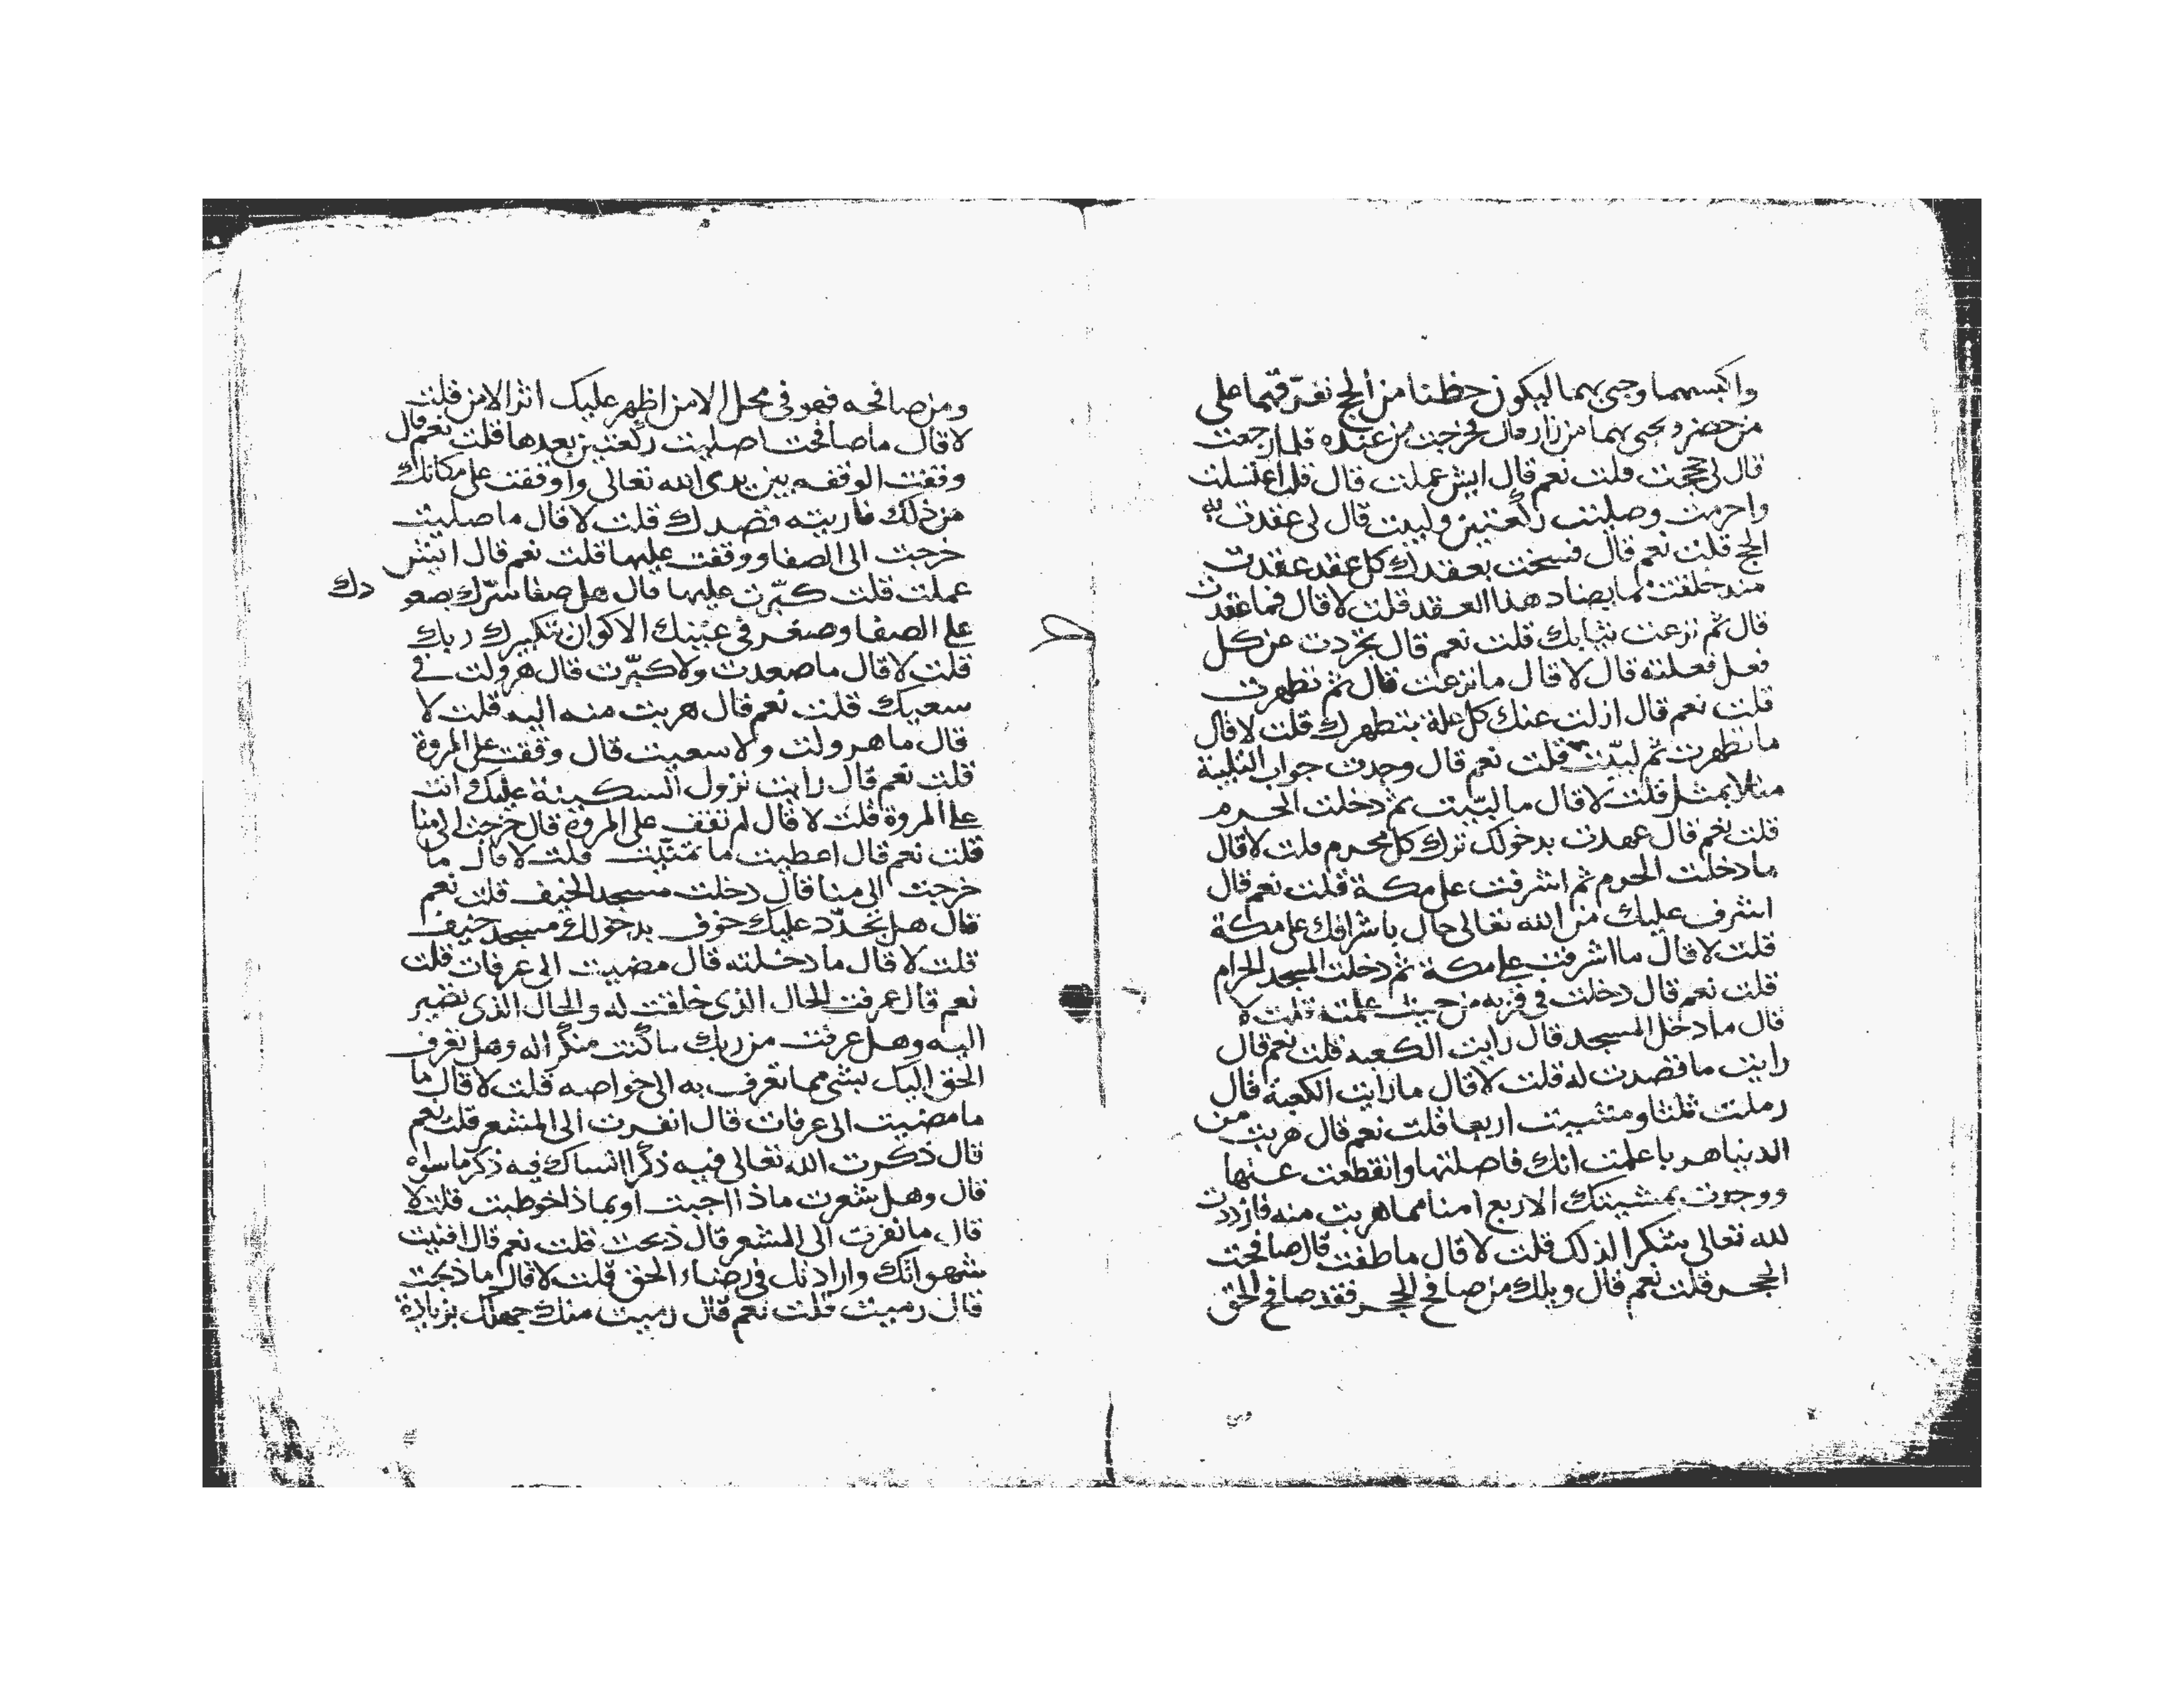 واكبسهما وجئ بهما ليكون حظنا من الحج نفرقهما على
من حضر ونحيي بهما من زار قال فخرجت من عنده فلما رجعت
قال لي حججت قلت نعم قال ايش عملت قال قلت اغتسلت
واحرمت وصليت ركعتين ولبيت قال لي عقدت به
الحج قلت نعم قال فسخت بعقدك كل عقد عقدت
منذ خلقت مما يضاد هذا العقد قلت لا قال فما عقدت
قال ثم نزعت ثيابك قلت نعم قال تجردت عن كل
فعل فعلته قال لا قال ما نزعت قال ثم تطهرت
قلت نعم قال ازلت عنك كل علة بتطهرك قلت لا قال
ما تطهرت ثم لبيت قلت نعم قال وجدت جواب التلبية
مثلا بمثل قلت لا قال ما لبيت ثم دخلت الحرم
قلت نعم قال عهدت بدخولك ترك كل محرم قلت لا قال
ما دخلت الحرم ثم اشرفت على مكة قلت نعم قال
اشرف عليك من الله تعالى حال باشرافك على مكة
قلت لا قال ما اشرفت على مكة ثم دخلت المسجد الحرام
قلت نعم قال دخلت في قربه من حيث علمته قلت لا
قال ما دخل المسجد قال رايت الكعبه قلت نعم قال
رايت ما قصدت له قلت لا قال ما رايت الكعبة قال
رملت ثلثا ومشيت اربعا قلت نعم قال هربت من
الدنيا هربا علمت انك فاصلتها وانقطعت عنها
ووجدت بمشيتك الاربع امنا مما هربت منه فازددت
لله تعالى شكرا لذلك قلت لا قال ما طفت قال صافحت
الحجر قلت نعم قال ويلك من صافح الحجر فقد صافح الحق
ومن صافحه فهو في محل الامن اظهر عليك اثر الامن قلت
لا قال ما صافحت صليت ركعتين بعدها قلت نعم قال
وقفت الوقفه بين يدي الله تعالى واوقفت على مكانك
من ذلك فاريته قصدك قلت لا قال ما صليت
خرجت الى الصفا ووقفت عليها قلت نعم قال ايش
عملت قلت كبرت عليها قال هل صفا سرك بصعو دك
على الصفا وصغر في عينك الاكوان تكبيرك ربك
قلت لا قال ما صعدت ولا كبرت قال هرولت في
سعيك قلت نعم قال هربت منه اليه قلت لا
قال ما هرولت ولا سعيت قال وقفت على المروة
قلت نعم قال رايت نزول السكينة عليك وانت
على المروة قلت لا قال لم تقف على المروة قال خرجت الى منا
قلت نعم قال اعطيت ما تمنيت قلت لا قال ما
خرجت الى منا قال دخلت مسجد الخيف قلت نعم
قال هل تجدد عليك خوف بدخولك مسجد خيف
قلت لا قال ما دخلته قال مضيت الى عرفات قلت
نعم قال عرفت للحال الذي خلقت له والحال الذي تصير
اليه وهل عرفت من ربك ما كنت منكرا له وهل تعرف
الحق اليك بشي مما تعرف به الى خواصه قلت لا قال ما
ما مضيت الى عرفات قال انفرت الى المشعر قلت نعم
قال ذكرت الله تعالى فيه ذكرا انساك فيه ذكر ما سواه
قال وهل شعرت ماذا اجبت او بماذا خوطبت قلت لا
قال ما نفرت الى المشعر قال ذبحت قلت نعم قال افنيت
شهواتك واراداتك في رضاء الحق قلت لا قال ما ذبحت
قال رميت قلت نعم قال رميت منك جهلك بزيادة